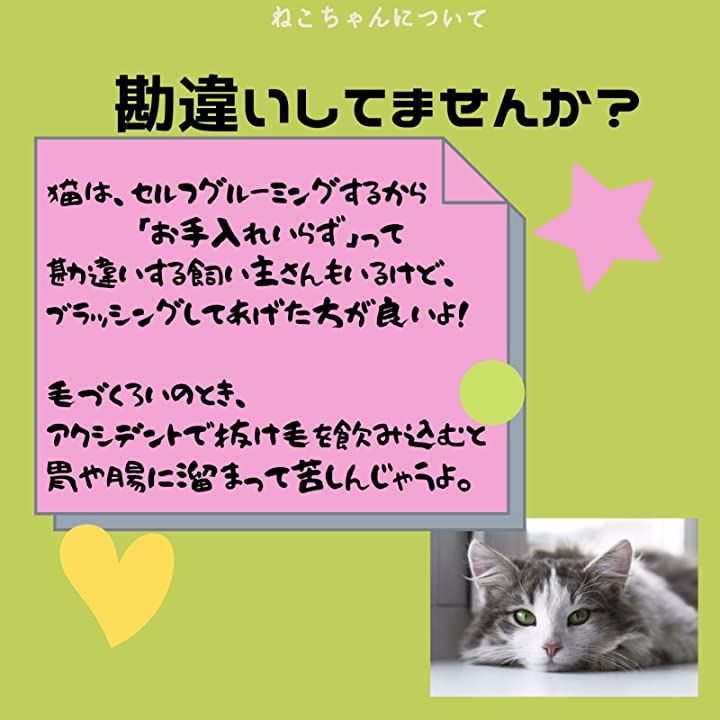 ねこちゃんについて
勘違いしてませんか？
猫は、セルフグルーミングするから
「お手入れいらず」って
勘違いする飼い主さんもいるけど、
ブラッシングしてあげた方が良いよ!
毛づくろいのとき、
アクシデントで抜け毛を飲み込むと
胃や腸に溜まって苦しんじゃうよ。